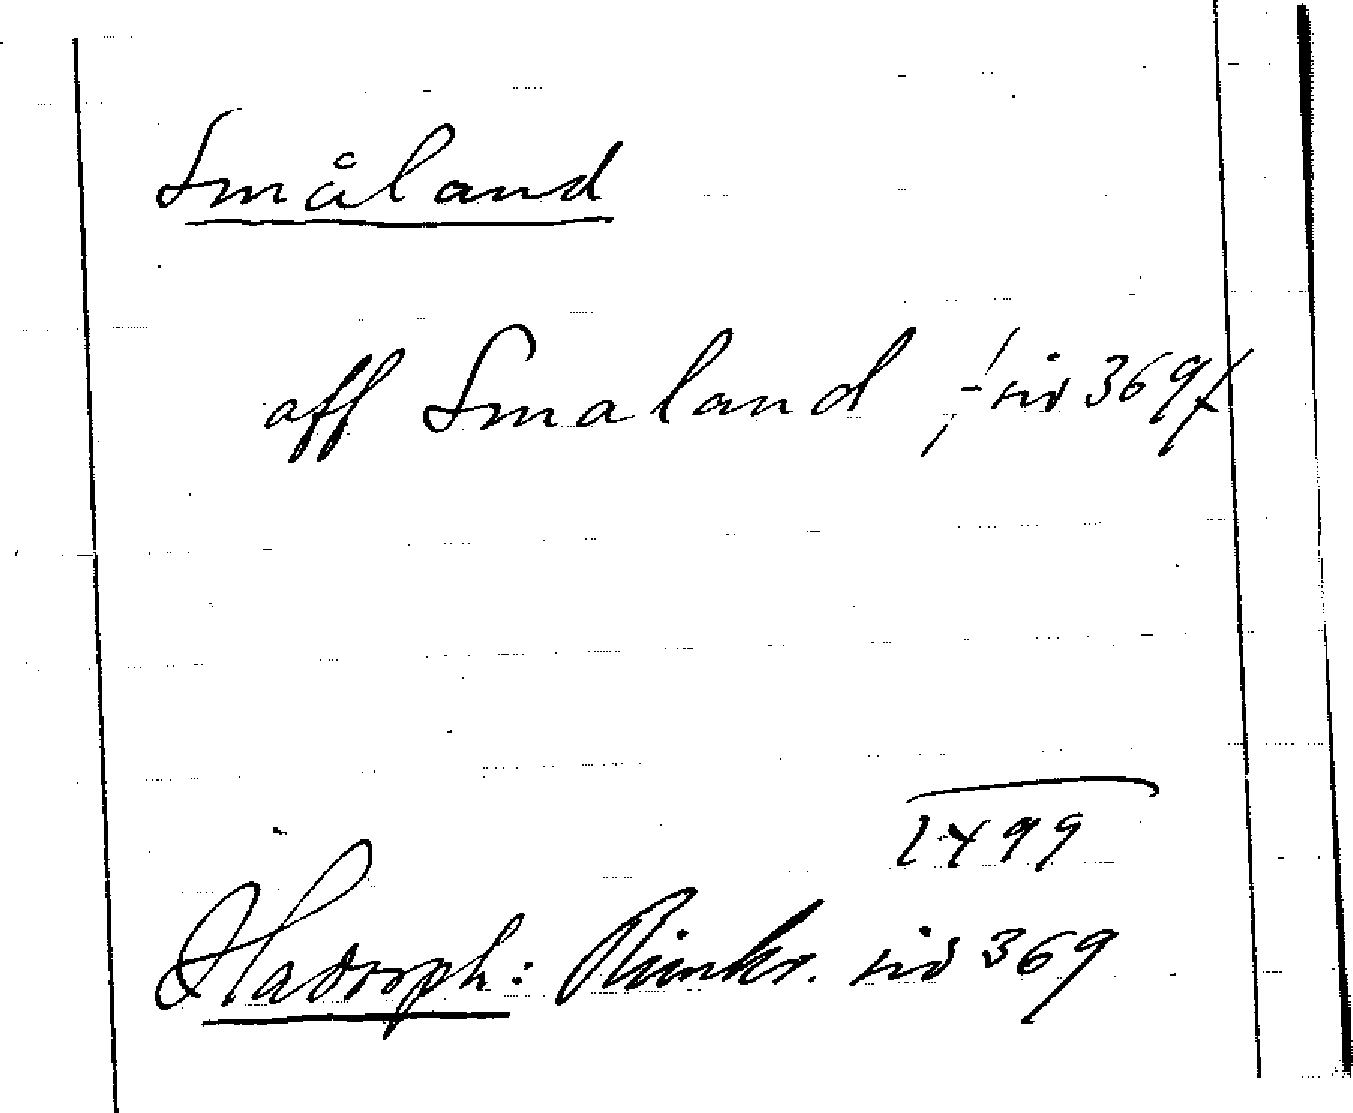 Småland
aff Smaland /-sid 369/
1499
Hadorph: Rimkr. sid 369